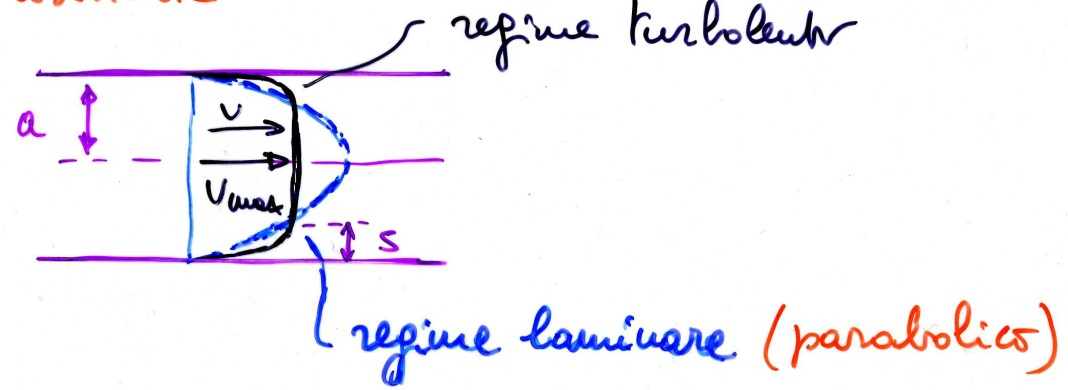 regime turbolento
a
v
vmax
s
regime laminare (parabolico)